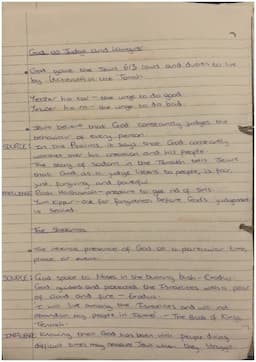 God as Judge and Lawgiver
God gave the Jews 613 laws and duties to live
by (Mitzvot) in the Torah.
Yetzer ha tov - the urge to do good
Yetzer ha ra - the urge to do bad.
Jews believe that God constantly judges the
behaviour of every person.
SOURCES In the Psalms, it says that God constantly
watches over his creation and his people.
The story of Sodom in the Tenakh tells Jews
that God as a judge listens to people, is fair,
just, forgiving and
INFLUENCE Rosh Hashanah - prepare to get rid of sins.
Yom Kippur - ask for forgiveness before God's judgement
is sealed
The Shekinah
The intense presence of God at a particular time,
place or event.
SOURCES God spoke to Moses in the burning bush - Exodus
God guided and protected the Israelites with a pillar
of cloud and fire - Exodus.
I will live among the Israelites and will not
abandon my people in Israel - The Book of Kings,
Tenakh.
INFLUENCE Knowing that God has been with people during
difficult times may Jews when they struggle